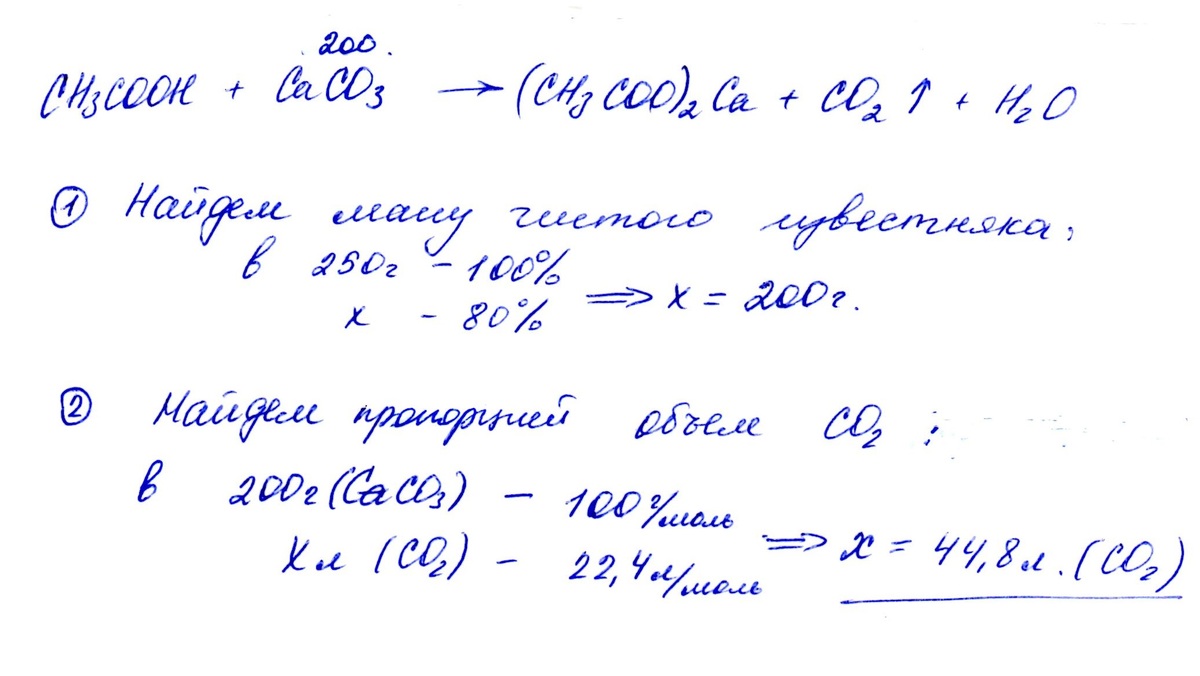 200.
CH₃COOH + CaCO₃ → (CH₃COO)₂Ca + CO₂ ↑ + H₂O
① Найдем массу чистого известняка:
в 250г – 100%
x – 80% ⟹ x = 200г.
② Найдем пропорцией объем CO₂ :
в 200г (CaCO₃) – 100 г/моль
Xл (CO₂) – 22,4 л/моль ⟹ x = 44,8л. (CO₂)